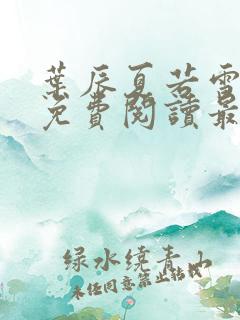 葉辰夏若雪
免費閱讀最
绿水绕青山
未经同意禁止转载